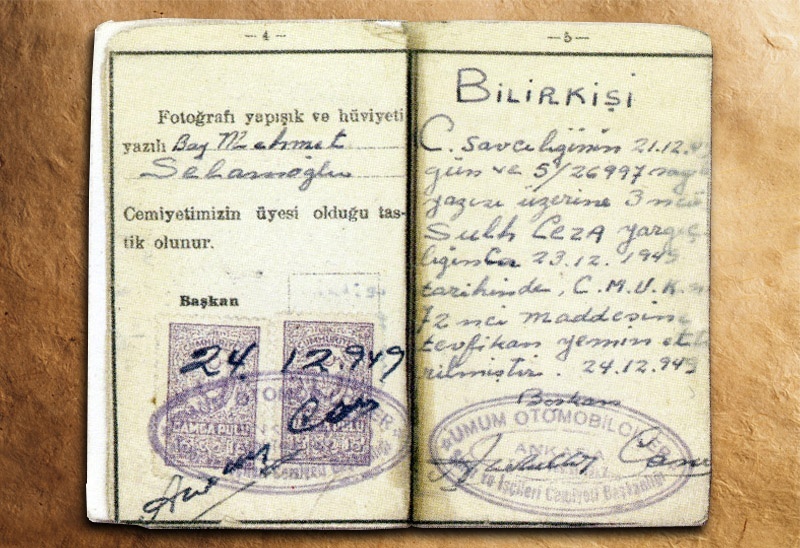 — 4 —
Fotoğrafı yapışık ve hüviyeti
yazılı Bay Mehmet
Cemiyetimizin üyesi olduğu tas-
tik olunur.
Başkan
24 12.949
DAMGA PULU DAMGA PULU
— 5 —
BİLİRKİŞİ
C. savcılığının 21.12.
gün ve 5/26997
yazısı üzerine 3 ncü
Sulh CEZA yargıç-
lığınca 23.12.1949
tarihinde, C.M.U.K.
72 nci maddesine
tevfikan yemin etti
rilmiştir. 24.12.949
Başkan
UMUM OTOMOBİLCİLER
ANKARA
ve İşçileri Cemiyeti Başkanlığı